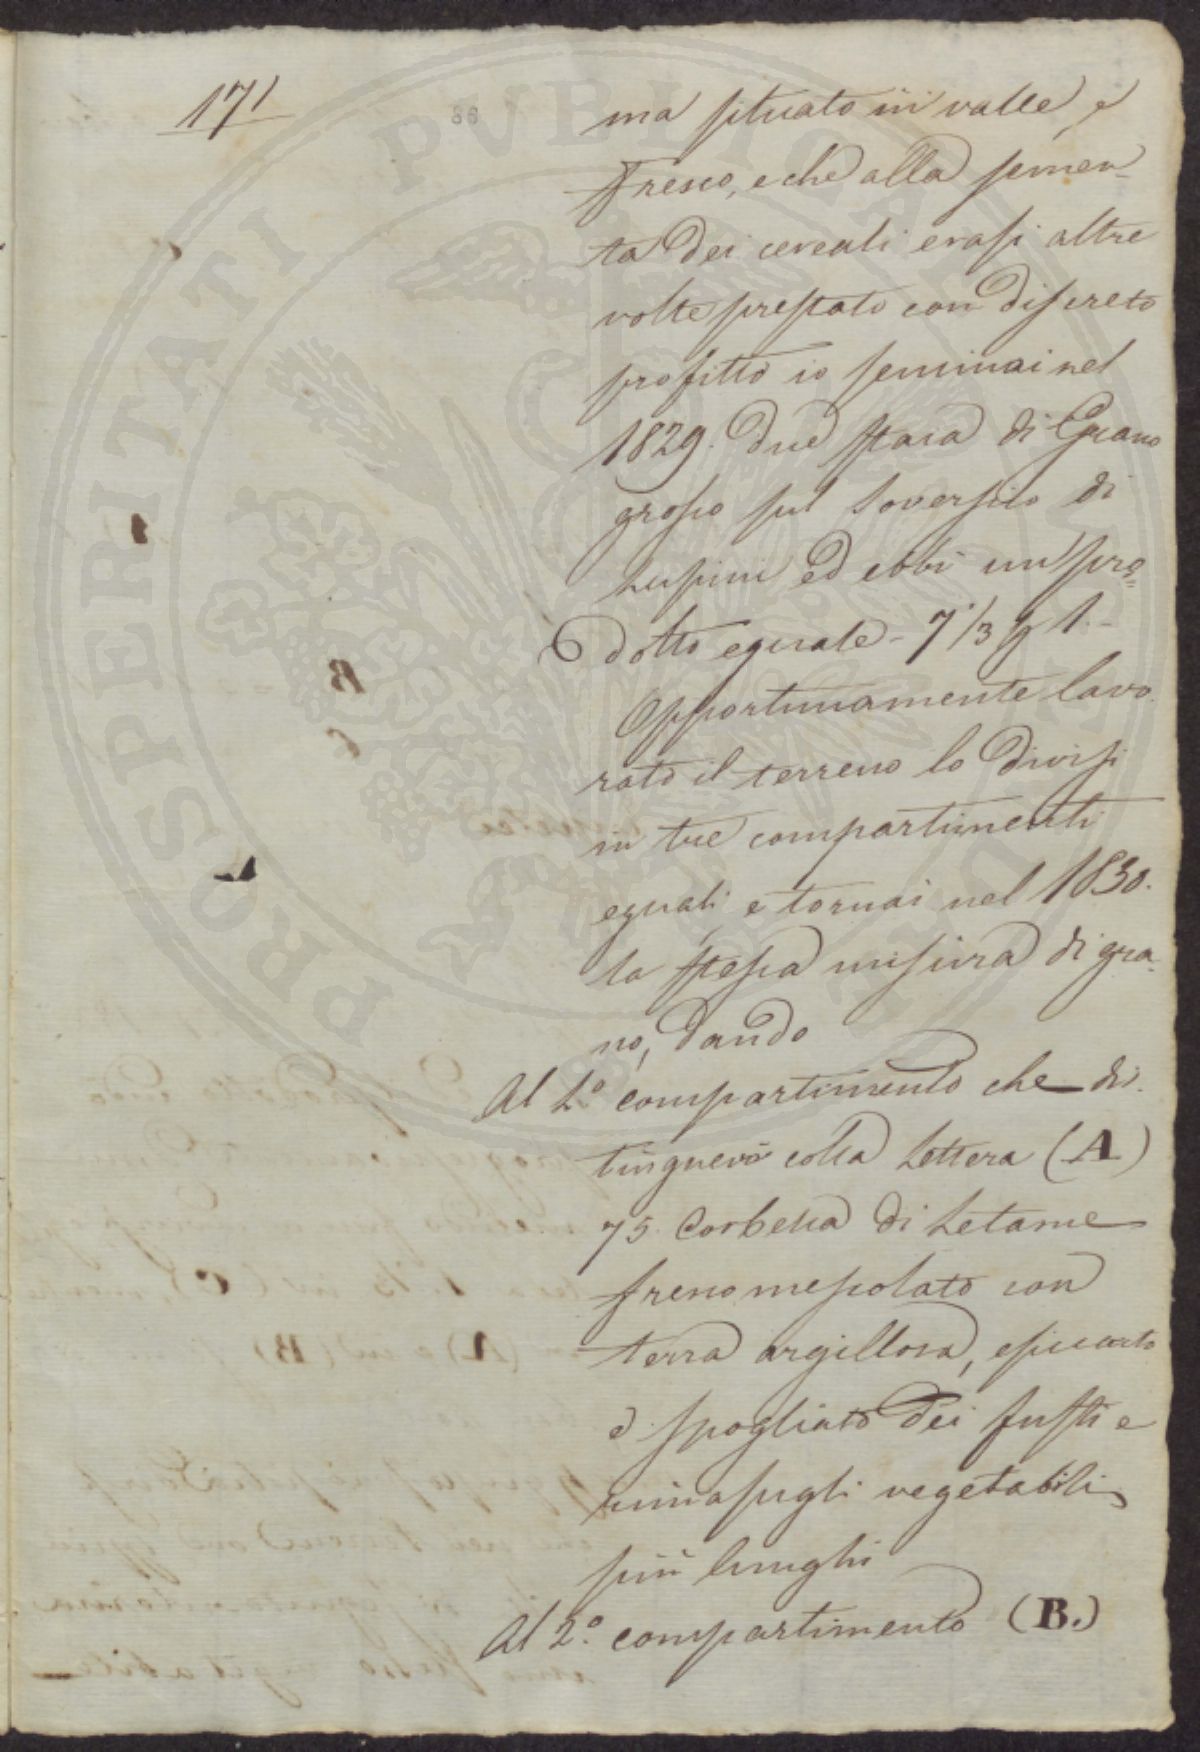 171
86
PROSPERITATI PVBLICAE
ma situato in valle, e
fresco, e che alla semen-
ta dei cereali erasi altre
volte prestato con discreto
profitto io seminai nel
1829. due staia di Grano
grosso sul soverscio di
Lupini ed ebbi un pro=
dotto eguale - 7 1/3 p 1.-
Opportunamente lavo-
rato il terreno lo divisi
in tre compartimenti
eguali, e tornai nel 1830.
la stessa misura di gra-
no, dando
Al 1.º compartimento che di-
tinguerò colla Lettera (A)
75. Corbella di Letame
freno mescolato con
terra argillosa, essiccato
e spogliato dei fusti e
rimasugli vegetabili
più lunghi
Al 2.º compartimento (B.)